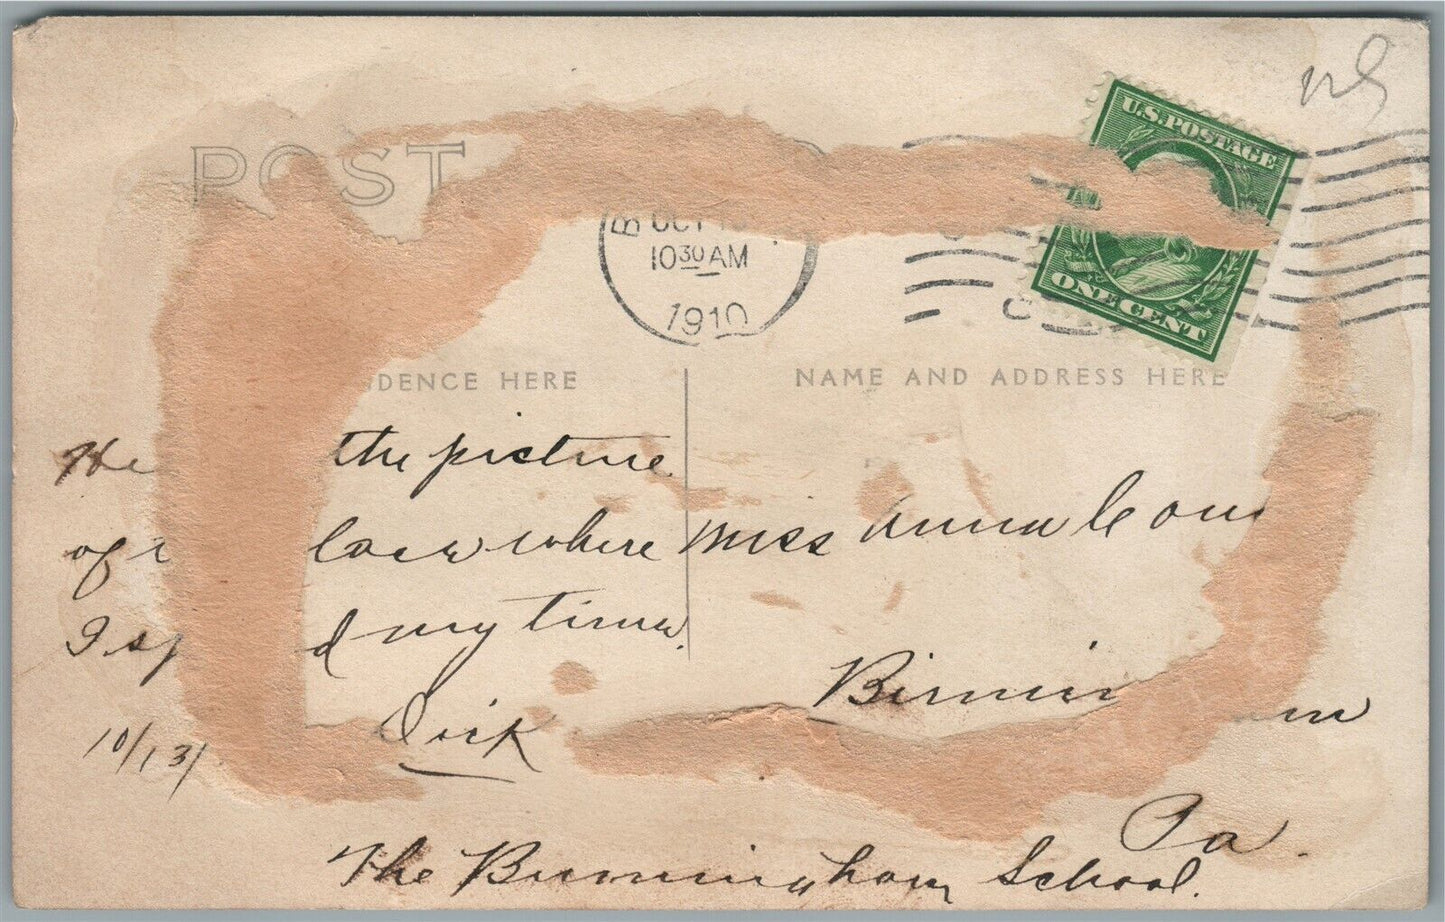 POST
U.S. POSTAGE
ONE CENT
B
OCT
10 30 AM
1910
DENCE HERE
NAME AND ADDRESS HERE
He the picture
of lace where
I sp d my time.
Dick
10/13/
Miss Anna Con
Birmin m
Pa.
The Birmingham School.